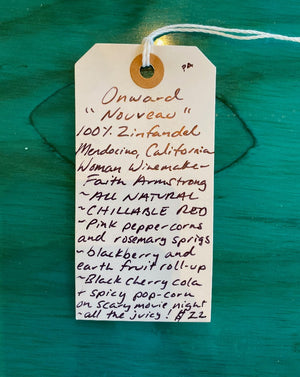 Onward
"Nouveau"
100% Zinfandel
Mendocino, California
Woman Winemaker
Faith Armstrong
~ALL NATURAL
~CHILLABLE RED
~Pink peppercorns
and rosemary sprigs
~blackberry and
earth fruit roll-up
~Black Cherry cola
+ spicy pop-corn
on scary movie night
~all the juicy! $22